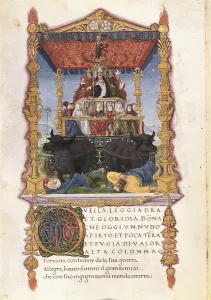 QVELLA LEGGIADRA
ET GLORIOSA DONA
CHE OGGI VN NVDO
SPIRTO ET POCA TERA
ET FV GIA DI VALOR
ALTA COLONNA
Tornaua con honor de la sua guerra
Allegra, hauendo uinto il gran nemico
che con suo ingegni tutto il mondo atterra.